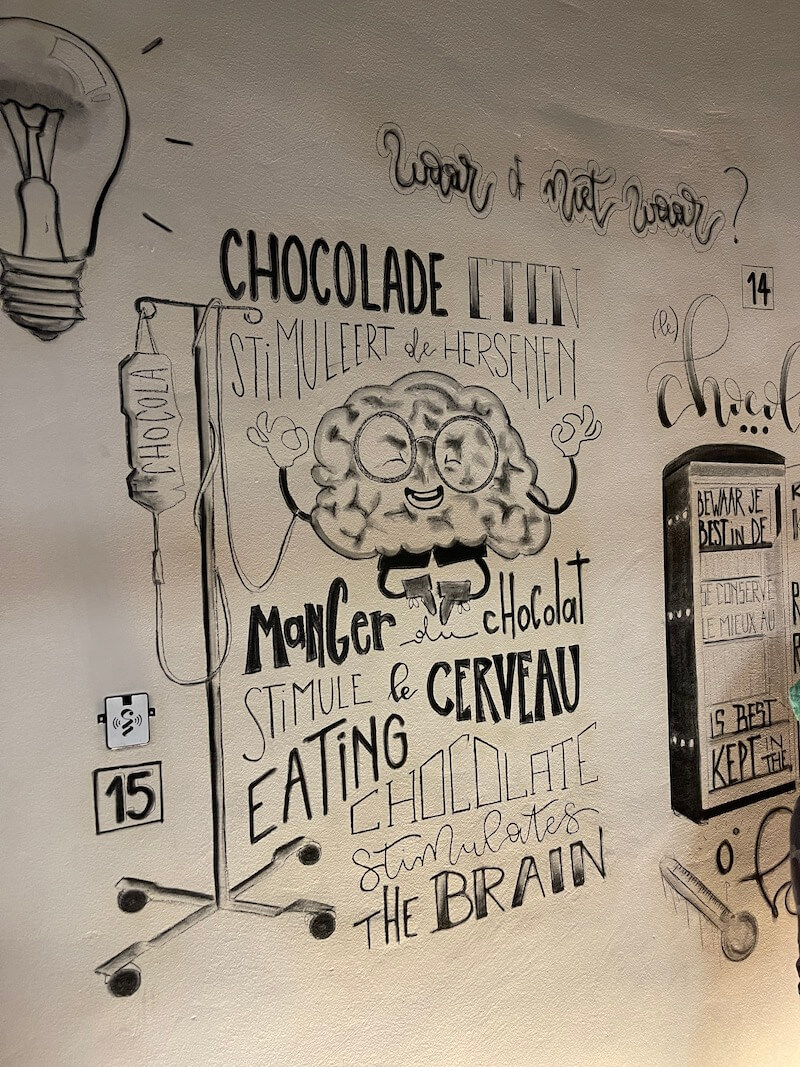 waar of niet waar?
CHOCOLADE ETEN
STIMULEERT de HERSENEN
CHOCOLA
MANGER du CHOCOLAT
STIMULE le CERVEAU
EATING
CHOCOLATE
stimulates
THE BRAIN
15
14
(le)
BEWAAR JE
BEST IN DE
SE CONSERVE
LE MIEUX AU
IS BEST
KEPT IN
THE
0°